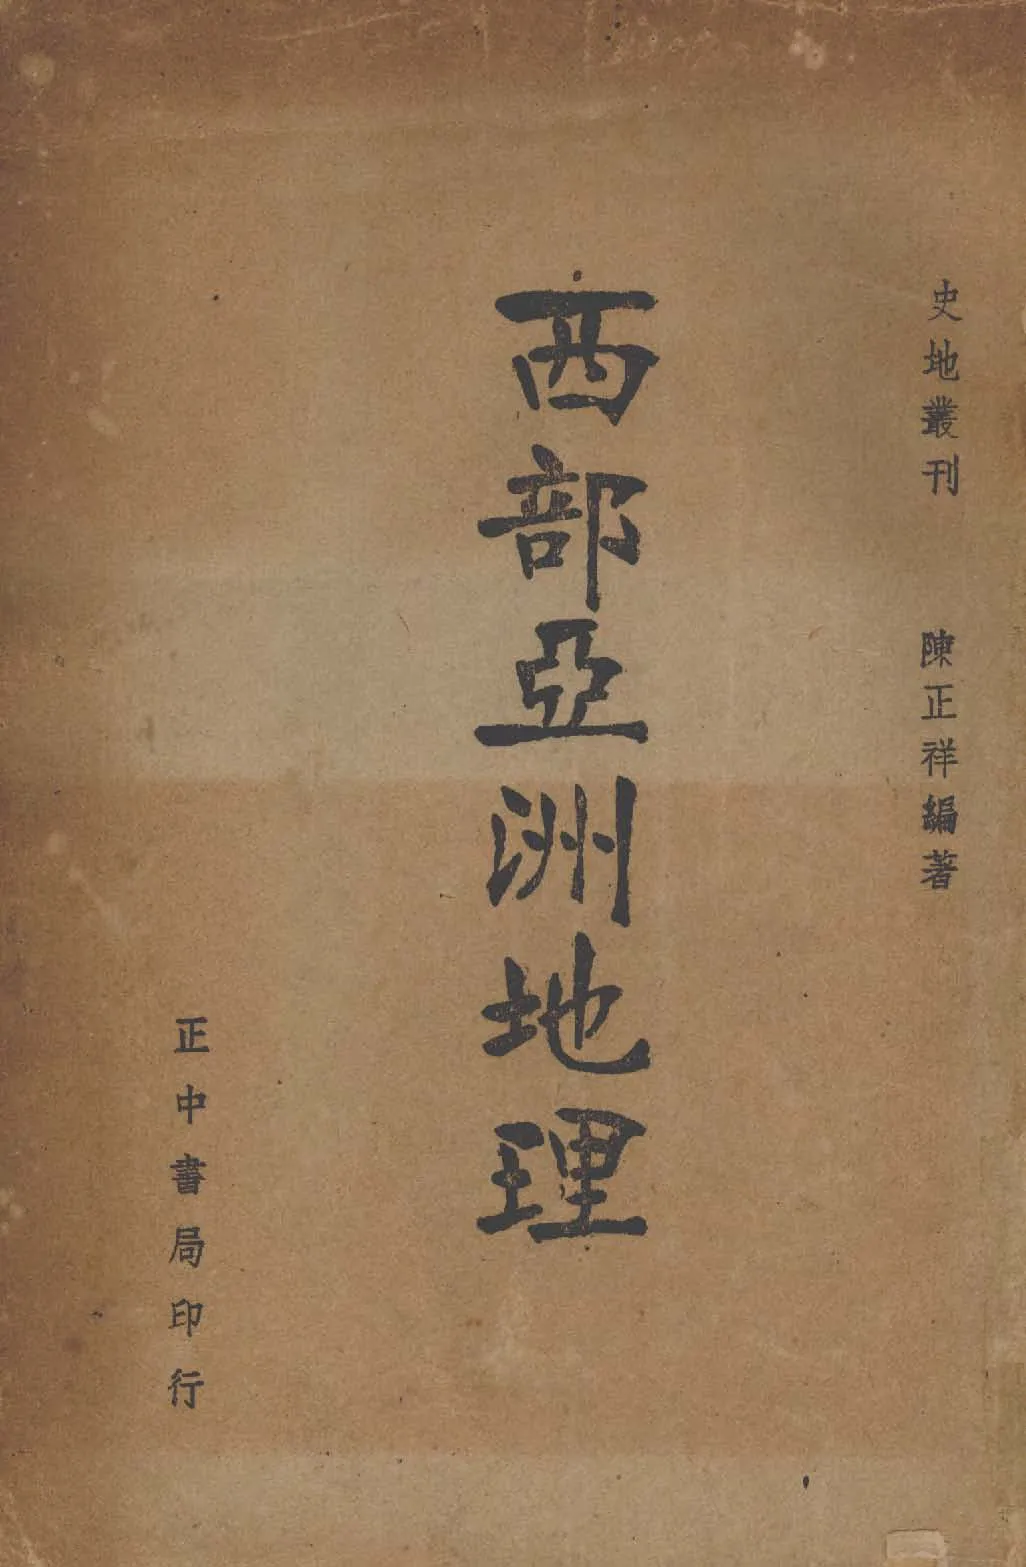 史地叢刊
陳正祥編著
西部亞洲地理
正中書局印行